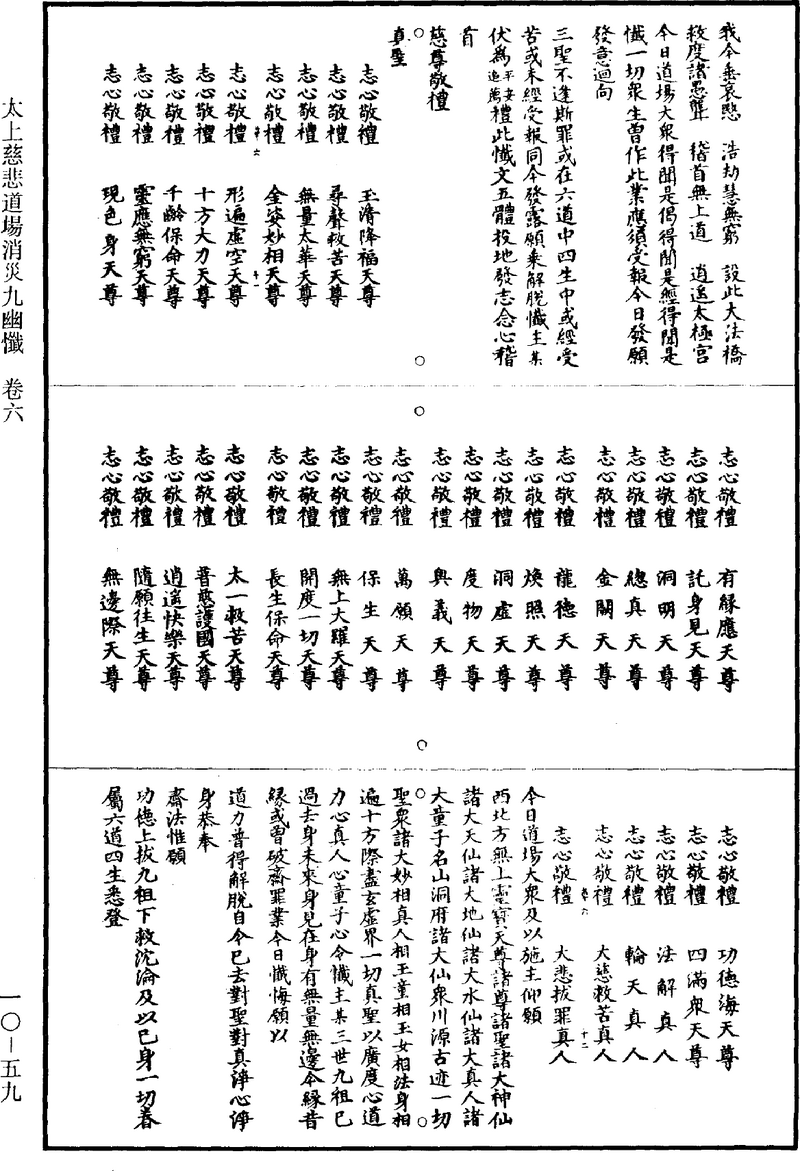 我今垂哀愍　浩劫慧無窮　設此大法橋
救度諸愚聾　稽首無上道　逍遙太極宮
今日道場大衆得聞是偈得聞是經得聞是
懺一切衆生曾作此業應須受報今日發願
發意迴向
三聖不逢斯罪或在六道中四生中或經受
苦或未經受報同今發露願乘解脫懺主某
伏爲平安追薦禮此懺文五體投地發志念心稽
首
慈尊敬禮
真聖
志心敬禮　玉清降福天尊
志心敬禮　尋聲救苦天尊
志心敬禮　無量太華天尊
志心敬禮　金姿妙相天尊
志心敬禮　形遍虛空天尊
志心敬禮　十方大力天尊
志心敬禮　千齡保命天尊
志心敬禮　靈應無窮天尊
志心敬禮　現色身天尊
志心敬禮　有緣應天尊
志心敬禮　託身見天尊
志心敬禮　洞明天尊
志心敬禮　總真天尊
志心敬禮　金闕天尊
志心敬禮　龍德天尊
志心敬禮　煥照天尊
志心敬禮　洞虛天尊
志心敬禮　度物天尊
志心敬禮　輿義天尊
志心敬禮　萬願天尊
志心敬禮　保生天尊
志心敬禮　無上大羅天尊
志心敬禮　開度一切天尊
志心敬禮　長生保命天尊
志心敬禮　太一救苦天尊
志心敬禮　普慈護國天尊
志心敬禮　逍遙快樂天尊
志心敬禮　隨願往生天尊
志心敬禮　無邊際天尊
志心敬禮　功德海天尊
志心敬禮　四滿衆天尊
志心敬禮　法解真人
志心敬禮　輪天真人
志心敬禮　大慈救苦真人
志心敬禮　大悲拔罪真人
今日道場大衆及以施主仰願
西北方無上靈寶天尊諸尊諸聖諸大神仙
諸大天仙諸大地仙諸大水仙諸大真人諸
大童子名山洞府諸大仙衆川源古迹一切
聖衆諸大妙相真人相玉童相玉女相法身相
遍十方際盡玄虛界一切真聖以廣度心道
力心真人心童子心令懺主某三世九祖已
過去身未來身見在身有無量無邊今緣昔
緣或曾破齋罪業今日懺悔願以
道力普得解脫自今已去對聖對真淨心淨
身恭奉
齋法惟願
功德上拔九祖下救沈淪及以己身一切眷
屬六道四生悉登
太上慈悲道場消災九幽懺　卷六
一〇—五九